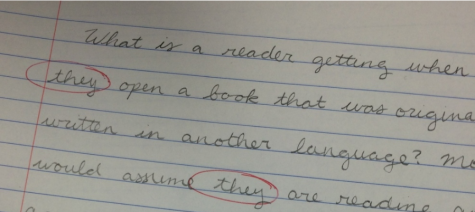 What is a reader getting when
they open a book that was origina
written in another language? Mo
would assume they are reading a